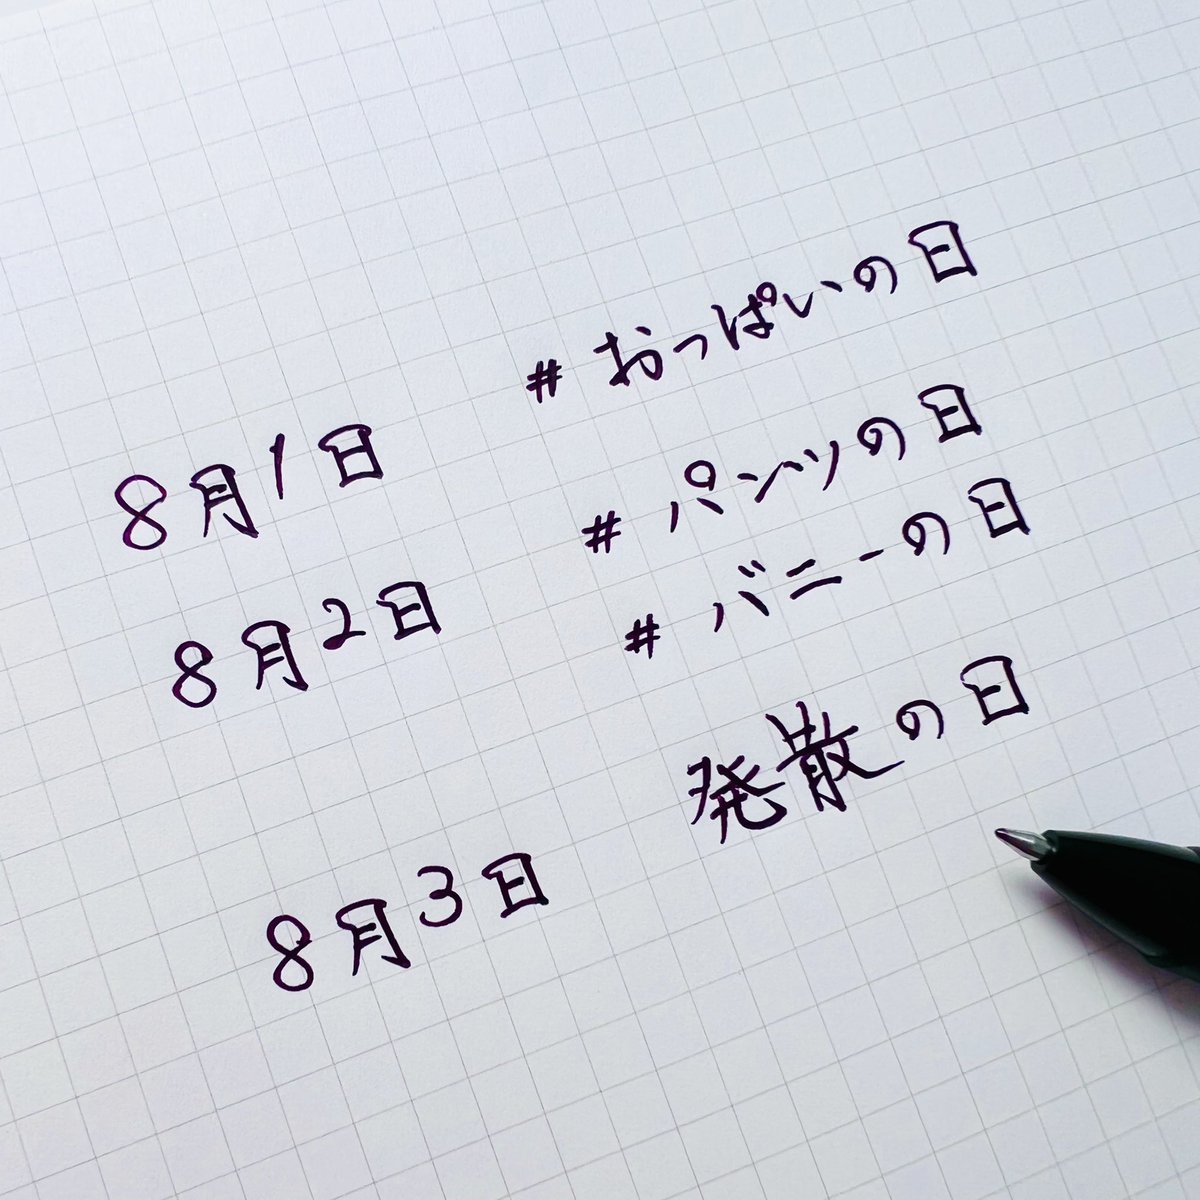 8月1日 #おっぱいの日
8月2日 #パンツの日
#バニーの日
8月3日 発散の日